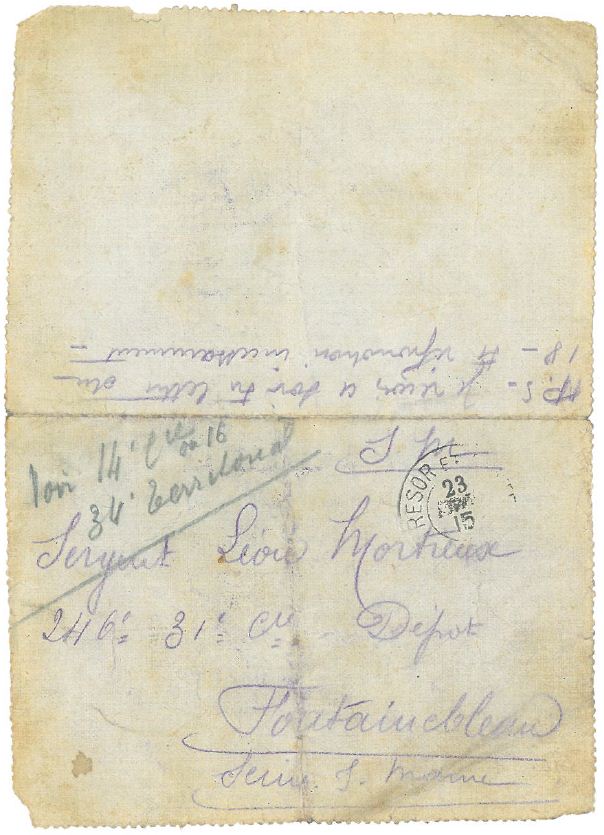 P.S - Je reçois ce soir ta lettre du
18 - Ft refromotion incessamment -
S M
Voir 14e Cie ou 16
34e Territorial
TRESOR E
23
15
Sergent Léon Mortreux
246e 31e Cie Dépôt
Fontainebleau
Seine S. Marne